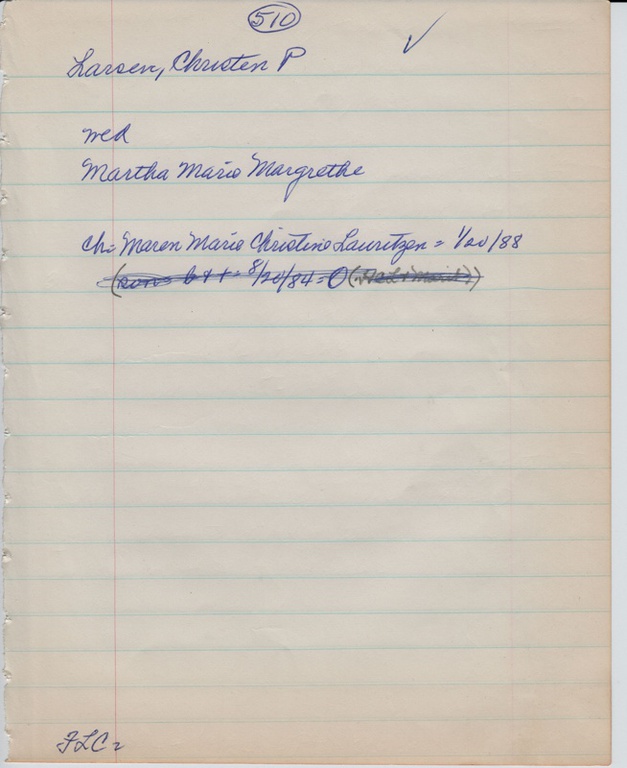 510
✓
Larsen, Christen P
wed
Martha Marie Margrethe
ch= Maren Marie Christine Lauritzen = 1/20/88
(son= b + t = 8/20/84 = 0 (
FLC =